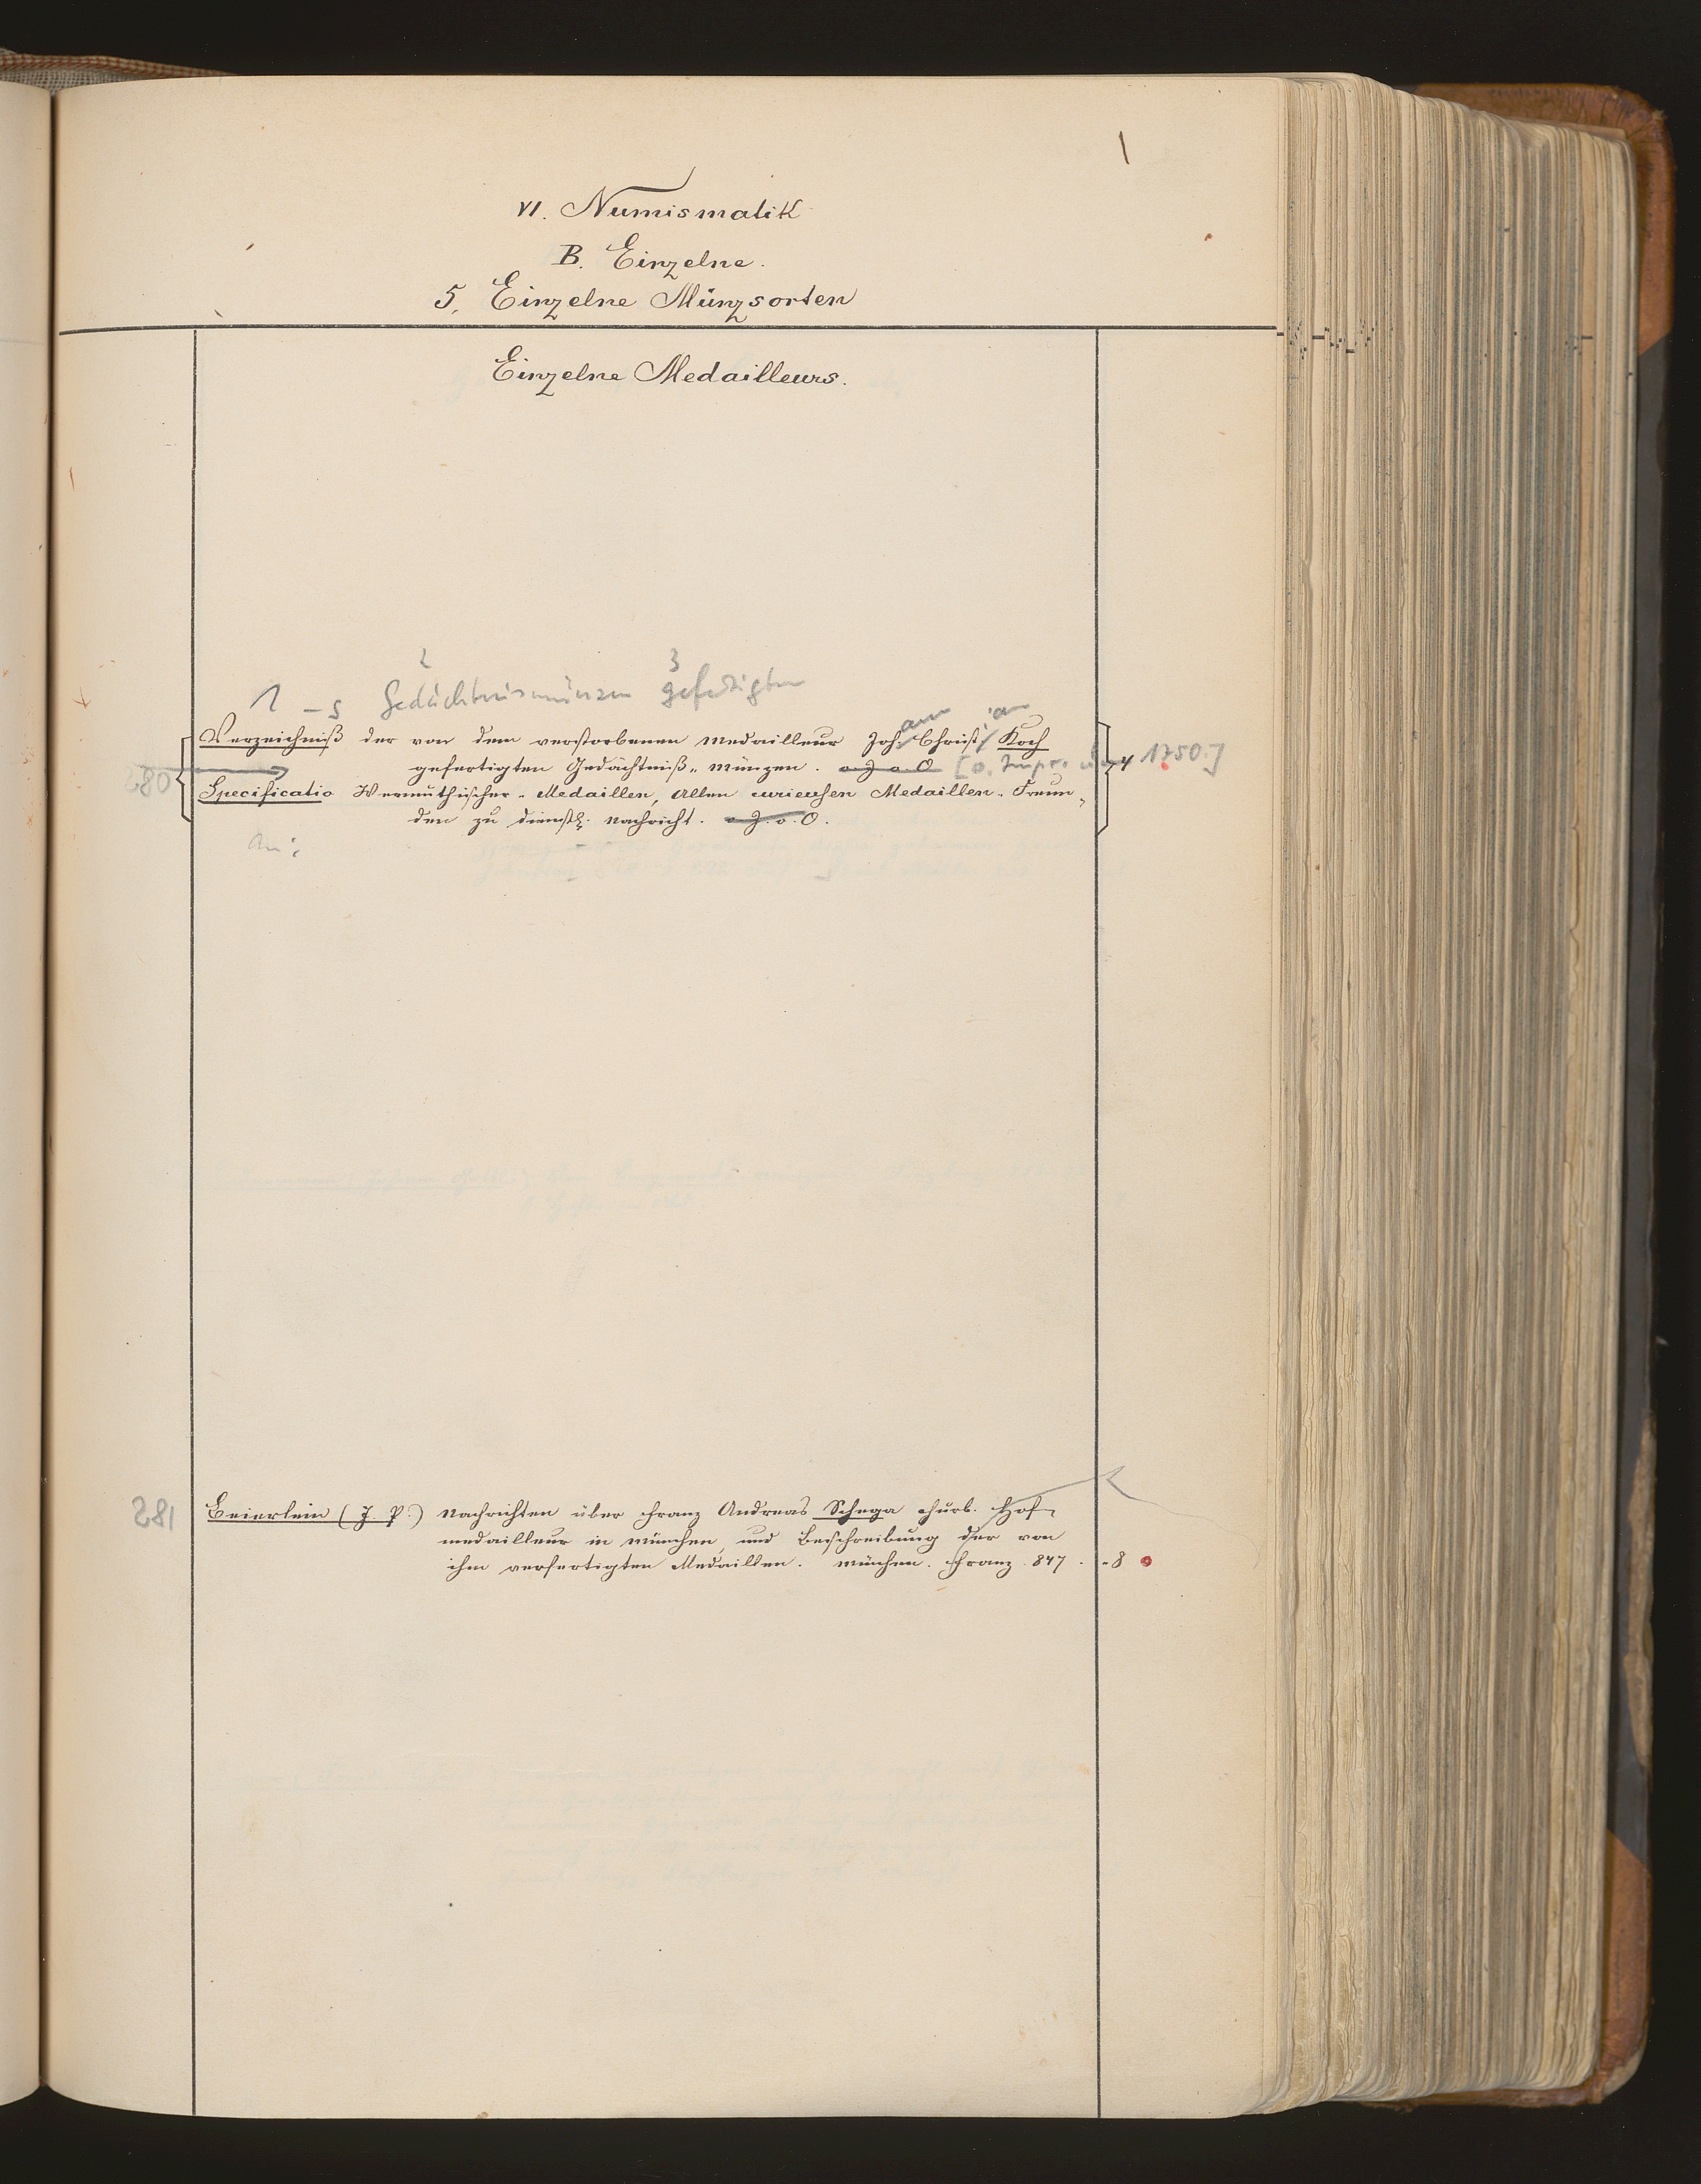 VI. Numismatik
B. Einzelne.
5, Einzelne Münzsorten
Einzelne Medailleurs.
2 3
1 – s Gedächtnismünzen gefertigten
ann ian
Verzeichniß der von dem verstorbenen Medailleur Joh. Christ. Koch
gefertigten Gedächtniß-Münzen. o. J. o. O. [o. Impr. 1750.]
280 4
Specificatio Wermuthischer-Medaillen, Allen curieusen Medaillen-Freun-
den zu dienstl. Nachricht. o. J. o. O.
An:
281 Beierlein (J. P.) Nachrichten über Franz Andreas Schega churb. Hof-
medailleur in München, und Beschreibung der von
ihm verfertigten Medaillen. München. Franz. 847. -8